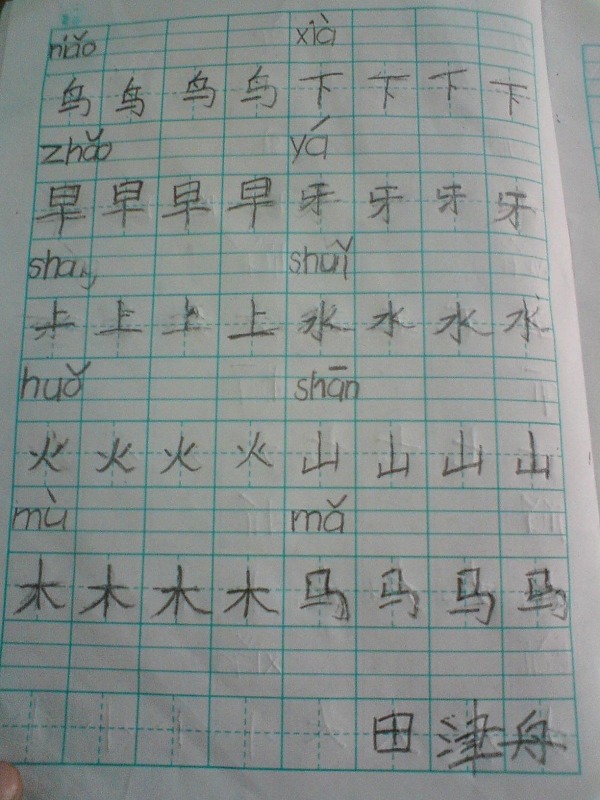 niǎo xià
鸟 鸟 鸟 鸟 下 下 下 下
zhǎo yá
早 早 早 早 牙 牙 牙 牙
shang shuǐ
上 上 上 上 水 水 水 水
huǒ shān
火 火 火 火 山 山 山 山
mù mǎ
木 木 木 木 马 马 马 马
田 津 舟